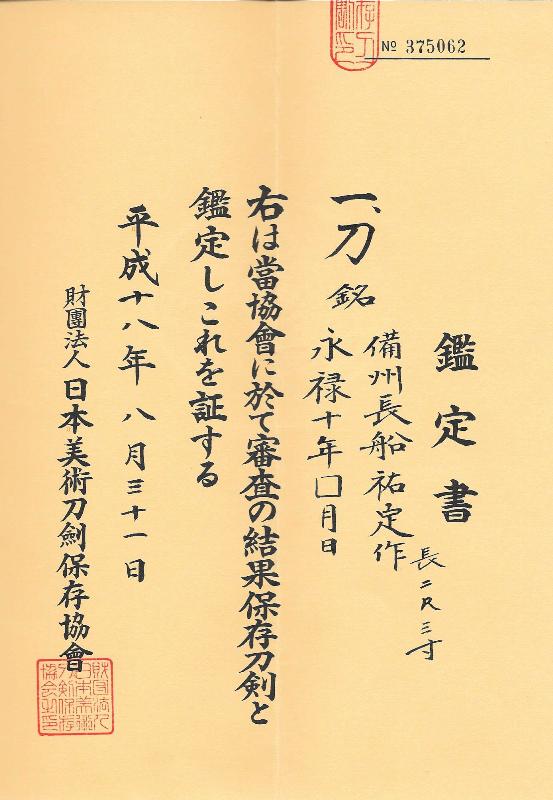 № 375062
鑑定書
一、刀 銘 備州長船祐定作
永禄十年□月日
長二尺三寸
右は當協會に於て審査の結果保存刀剣と
鑑定しこれを証する
平成十八年八月三十一日
財團法人日本美術刀劍保存協會